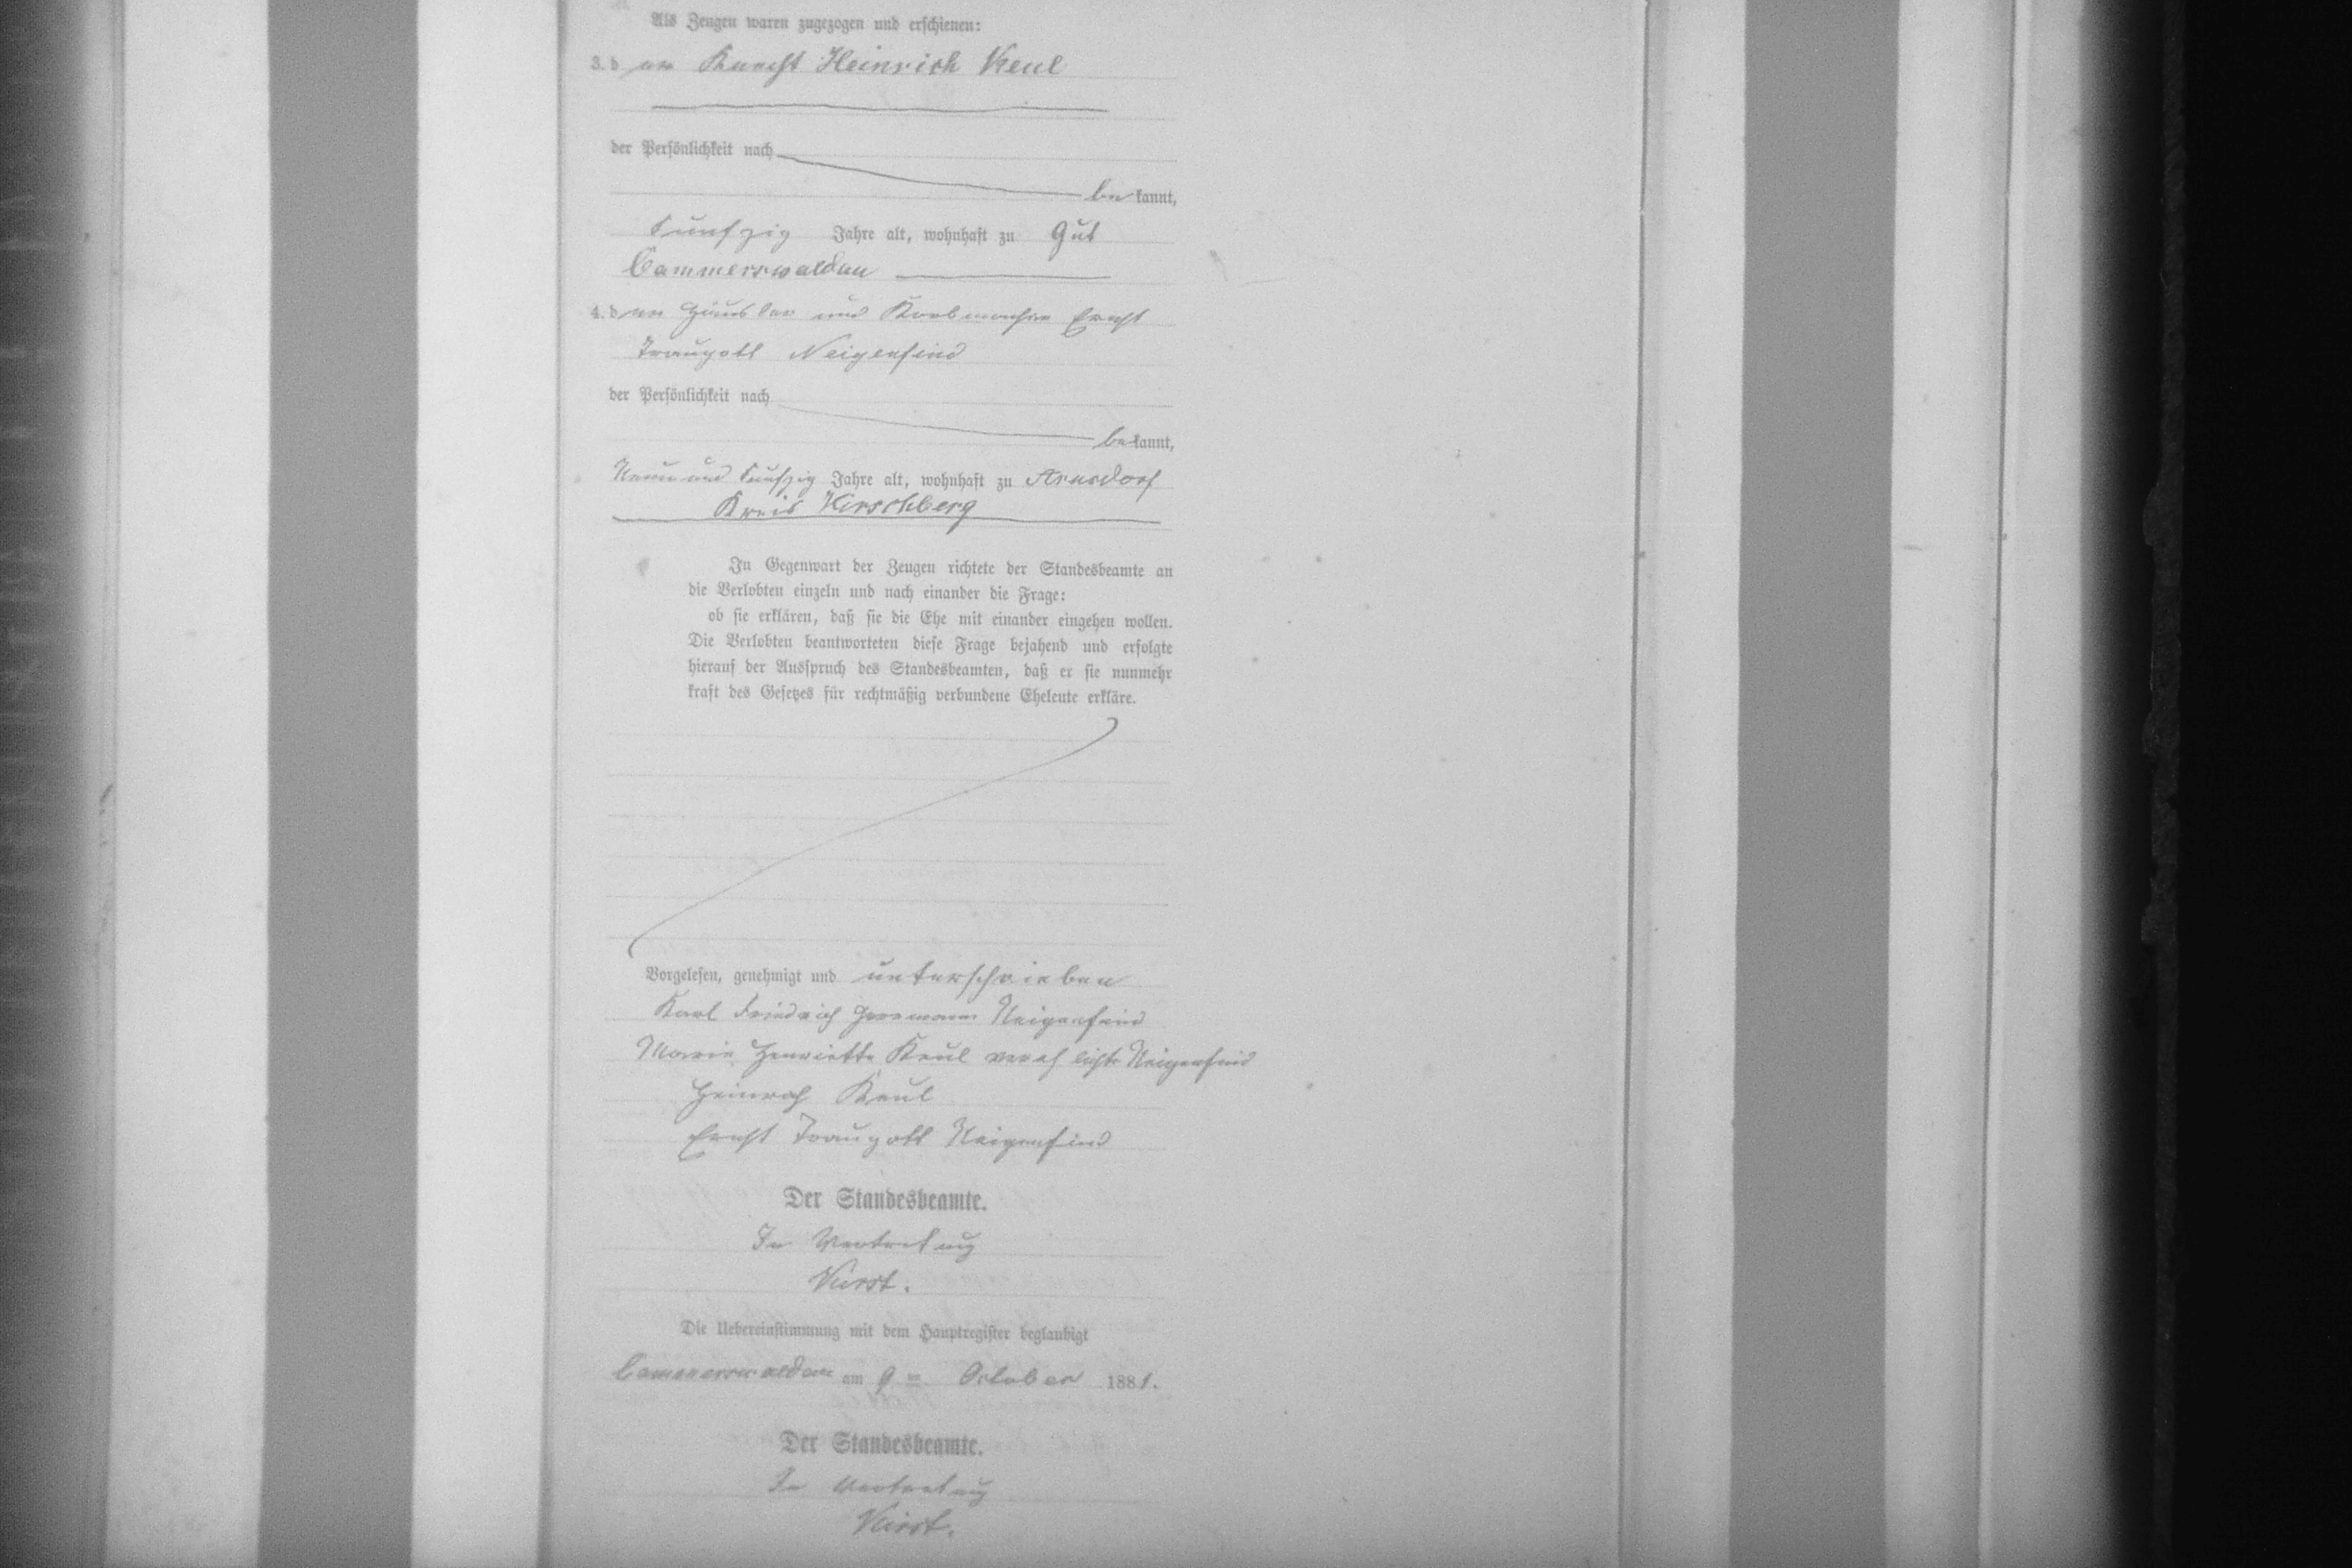 Als Zeugen waren zugezogen und erschienen:
3. der Knecht Heinrich Keul
der Persönlichkeit nach
bekannt,
Fünfzig Jahre alt, wohnhaft zu Gut
Cammerswaldau
4. der Häusler und Korbmacher Ernst
Traugott Neigenfind
der Persönlichkeit nach
bekannt,
Neun und Fünfzig Jahre alt, wohnhaft zu Arnsdorf
Kreis Hirschberg
In Gegenwart der Zeugen richtete der Standesbeamte an
die Verlobten einzeln und nach einander die Frage:
ob sie erklären, daß sie die Ehe mit einander eingehen wollen.
Die Verlobten beantworteten diese Frage bejahend und erfolgte
hierauf der Ausspruch des Standesbeamten, daß er sie nunmehr
kraft des Gesetzes für rechtmäßig verbundene Eheleute erkläre.
Vorgelesen, genehmigt und unterschrieben
Karl Friedrich Herrmann Neigenfind
Marie Henriette Keul verehlichte Neigenfind
Heinrich Keul
Ernst Traugott Neigenfind
Der Standesbeamte.
In Vertretung
Kirst.
Die Uebereinstimmung mit dem Hauptregister beglaubigt
Cammerswaldau am 9ten October 1881.
Der Standesbeamte.
In Vertretung
Kirst.